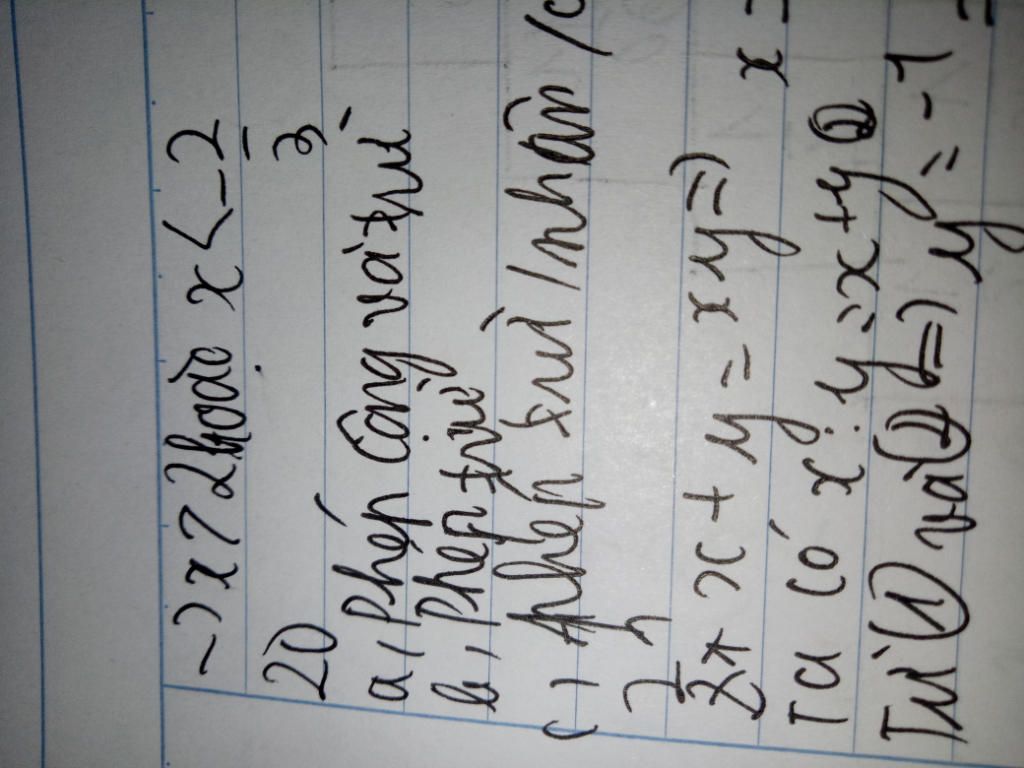 -) x > 2 hoặc x < -2/3
20
a, Phép cộng và trừ
b, Phép trừ
c, Phép trừ / nhân /
x + y = xy =) x =
Ta có x : y = x + y ②
Từ ① và ② =) y = -1